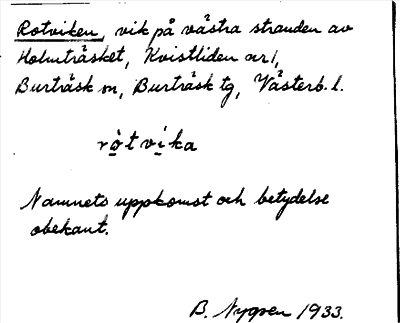 Rotviken, vik på västra stranden av
Holmträsket, Kvistliden nr 1,
Burträsk sn, Burträsk tg, Västerb. l.
rò̤t vi̤ka
Namnets uppkomst och betydelse
obekant.
B. Nygren 1933.